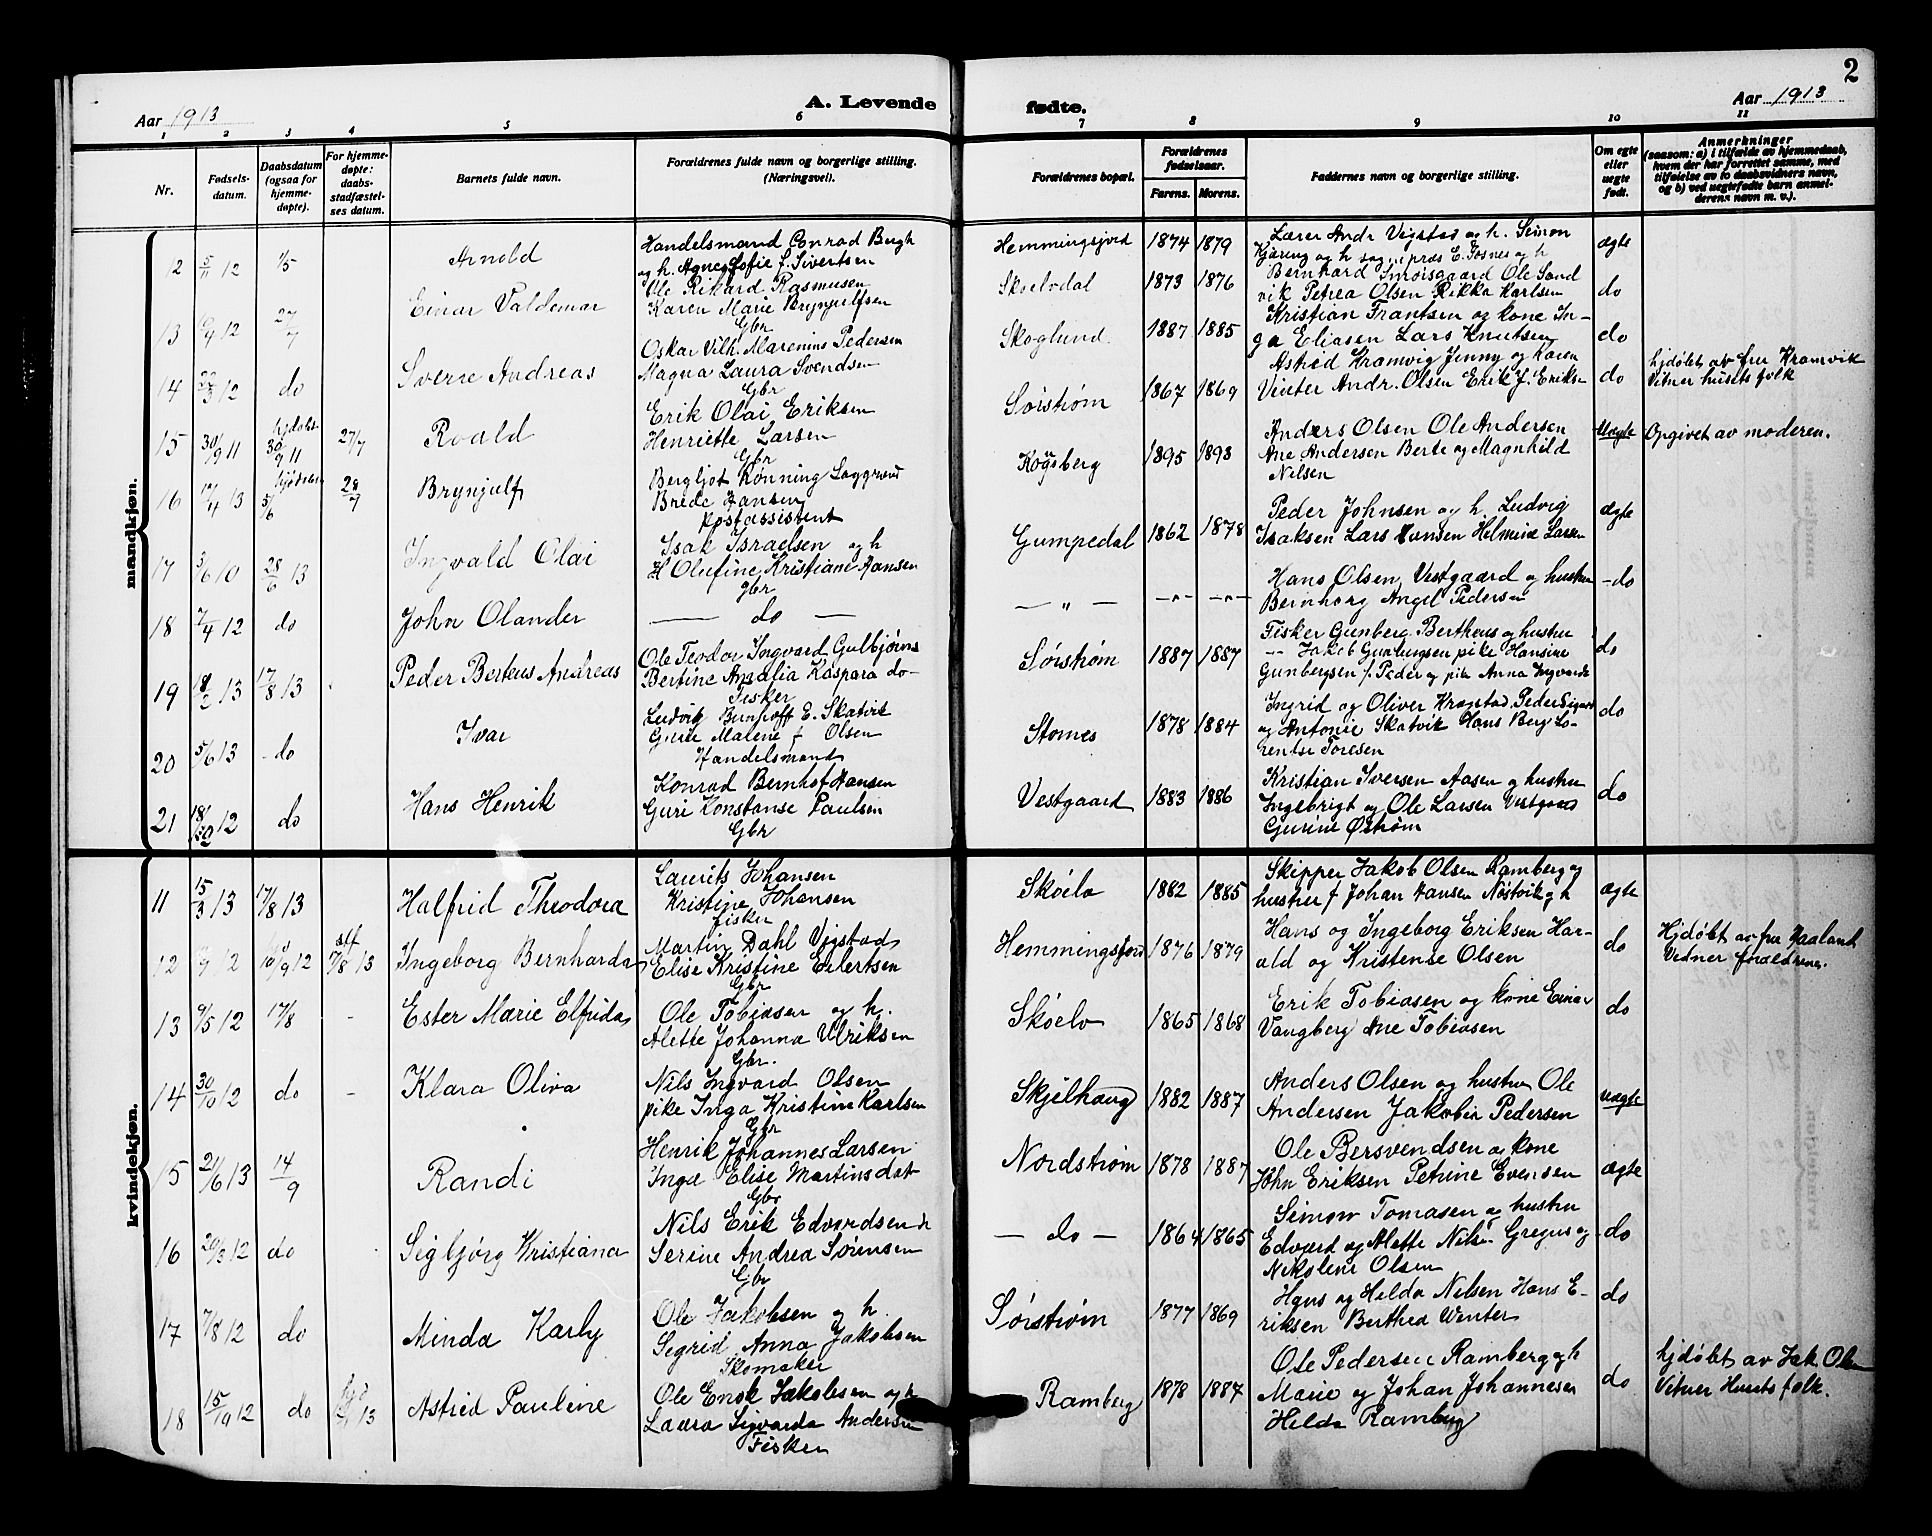 2
Aar 1913
A. Levende
fødte.
Aar 1913
1 2 3 4 5 6 7 8 9 10 11
Nr.
Fødsels-
datum.
Daabsdatum
(ogsaa for
hjemme-
døpte).
For hjemme-
døpte:
daabs-
stadfæstel-
ses datum.
Barnets fulde navn.
Forældrenes fulde navn og borgerlige stilling.
(Næringsvei).
Forældrenes bopæl.
Forældrenes
fødselsaar.
Farens. Morens.
Faddernes navn og borgerlige stilling.
Om egte
eller
uegte
født.
Anmerkninger
(saasom: a) i tilfælde av hjemmedaab,
hvem der har forrettet samme, med
tilføielse av to daabsvidners navn,
og b) ved uegtefødte barn anmel-
derens navn m. v.).
mandkjøn.
12 5/11 12 1/5 Arnold
Handelsmand Conrad Bergh
og h. Agnes Sofie f. Sivertsen
Hemmingsjord 1874 1879
Lærer Andr Vigstad og h. Simon
Kjæring og h sognepræs E. Fosnes og h
ægte
13 12 27/7 Einar Valdemar
Ole Rikard Rasmusen
Karen Marie Brynjulfsen
Gbr
Skoelvdal 1873 1876
Bernhard Smørsgaard Ole Sand
vik Petrea Olsen Rikka Karlsen
do
14 12 do Sverre Andreas
Oskar Vilh. Marenius Pedersen
Magna Laura Svendsen
Gbr
Skoglund 1887 1885
Kristian Frantsen og kone In-
ga Eliasen Lars Knutsen
do
15 30/9 11 hjdøbt 30/9 11 27/7 Roald
Erik Olai Eriksen
Henriette Larsen
Gbr
Sørstrøm 1867 1869
Astrid Kramvig Jenny og Karen
Vinter Andr. Olsen Erik J. Eriksen
do
hjdøbt av fru Kramvik
Vitner husets folk
16 17/4 13 5/6 28/7 Brynjulf
Bergljot Rønning
Brede Hansen
Postassistent
Kogsberg 1895 1893
Anders Olsen Ole Andersen
Ane Andersen Berte og Magnhild
Nilsen
Uægte
Opgivet av moderen.
17 3/6 10 28/6 13 Ingvald Olai
Isak Israelsen og h
H Olufine Kristiane Hansen
gbr
Gumpedal 1862 1878
Peder Johnsen og h. Ludvig
Isaksen Lars Hansen Helmine Larsen
ægte
18 7/4 12 do John Olander
— do —
— " — — " — — " —
Hans Olsen Vestgaard og hustru
Bernhorg Angel Pedersen
- do
19 18/2 13 17/8 13 Peder Berteus Andreas
Ole Teodor Ingvard Gulbjørns
Bertine Amalia Kaspara do-
Fisker
Sørstrøm 1887 1887
Fisker Gunberg Bertheus og hustru
Jakob Gunbergsen pike Hansine
Gunbergsen f. Peder og pike Anna Ingvarda
do
20 5/6 13 - do Ivar
Ludvig Bernhoff E. Skatvik
Gurie Malene f Olsen
Handelsmand
Stomes 1878 1884
Ingrid og Oliver Kronstad Peder Sigurd
og Antonie Skatvik Hans Berg Lo-
rentse Toresen
do
21 12 do Hans Henrik
Konrad Bernhof Hansen
Guri Konstanse Paulsen
Gbr
Vestgaard 1883 1886
Kristian Iversen Aasen og hustru
Ingebrigt og Ole Larsen Vestgaard
Gurine Østrøm
do
kvindekjøn.
11 15/3 13 17/8 13 Halfrid Theodora
Laurits Johansen
Kristine Johansen
fisker
Skoelv 1882 1885
Skipper Jakob Olsen Ramberg og
hustru f Johan Hansen Nøstvik og h
ægte
12 12 10/9 12 stf 17/8 13 Ingeborg Bernharda
Martin Dahl Vigstad
Elise Kristine Eilertsen
Gbr
Hemmingsjord 1876 1879
Hans og Ingeborg Eriksen Har-
ald og Kristense Olsen
do
Hjdøbt av fru Haaland
Vidner forældrene.
13 9/5 12 17/8 - Ester Marie Elfrida
Ole Tobiasen og h.
Alette Johanna Ulriksen
Gbr.
Skoelv 1865 1868
Erik Tobiasen og kone Einar
Vangberg Ane Tobiasen
do
14 30/10 12 do - Klara Oliva
Nils Ingvard Olsen
pike Inga Kristine Karlsen
Gbr
Skjelhaug 1882 1887
Anders Olsen og hustru Ole
Andersen Jakobin Pedersen
uægte
15 21/6 13 14/9 Randi
Henrik Johannes Larsen
Inga Elise Martinsdat
Gbr
Nordstrøm 1878 1887
Ole Bersvendsen og kone
John Eriksen Petrine Evensen
ægte
16 20/3 12 do Sigbjørg Kristiana
Nils Erik Edvardsen h
Serine Andrea Sørensen
Gbr
— do — 1864 1865
Simon Tomasen og hustru
Edvard og Alette Nils. Gregus og
Nikoline Olsen
do
17 7/8 12 do Minda Karly
Ole Jakobsen og h.
Sigrid Anna Jakobsen
Skomaker
Sørstrøm 1877 1869
Hans og Hilda Nilsen Hans E-
riksen Berthea Winter
do
18 15/10 12 do 13 Astrid Pauline
Ole Enok Jakobsen og h
Laura Sigvarda Andersen
Fisker
Ramberg 1878 1887
Ole Pedersen Ramberg og h
Marie og Johan Johannesen
Hilda Ramberg
do
hjdøbt av Jak Olsen
Vitner Husets folk.